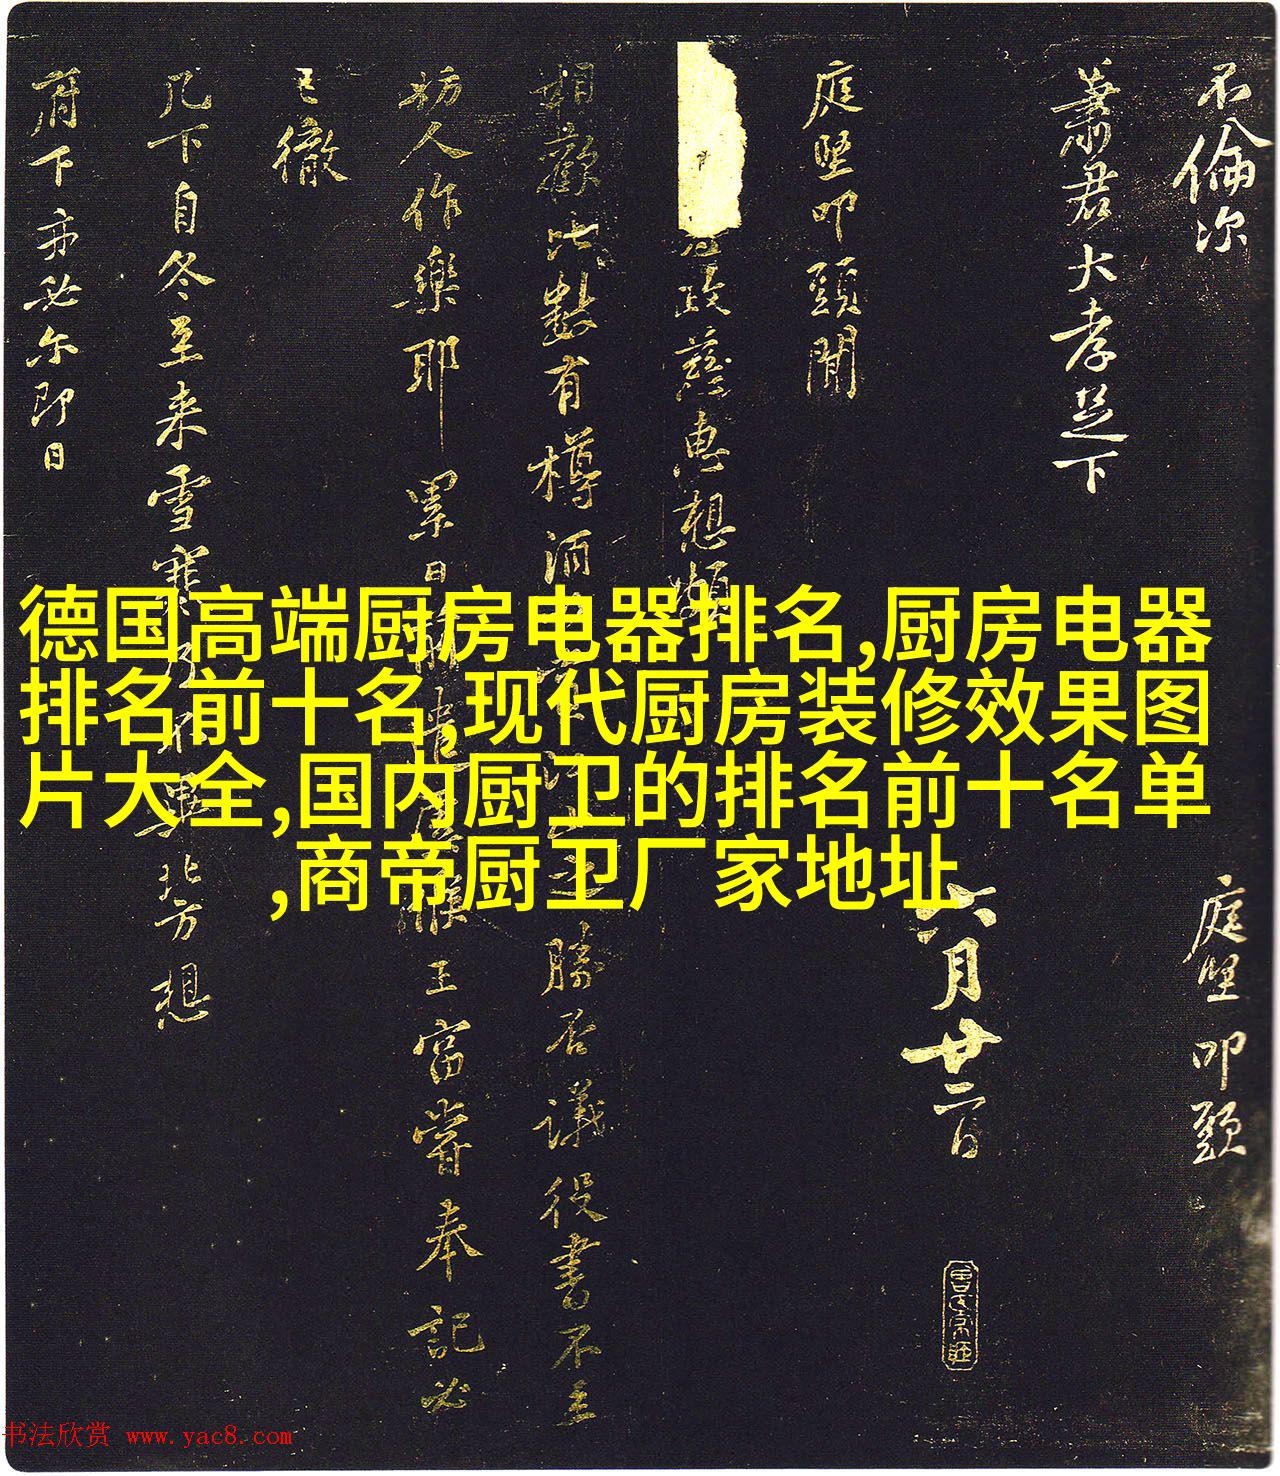 不倫次
蕭君大孝足下
庭堅叩頭聞
政慈惠想
相歡 有樽酒
勝否議役書不主
枋人作樂耶 累日
王富嘗奉記必
已徹
几下自冬至来雪寒
想
府下亦必尔即日
德国高端厨房电器排名,厨房电器
排名前十名,现代厨房装修效果图
片大全,国内厨卫的排名前十名单
,商帝厨卫厂家地址
六月廿二日
庭堅叩頭
书法欣赏 www.yac8.com